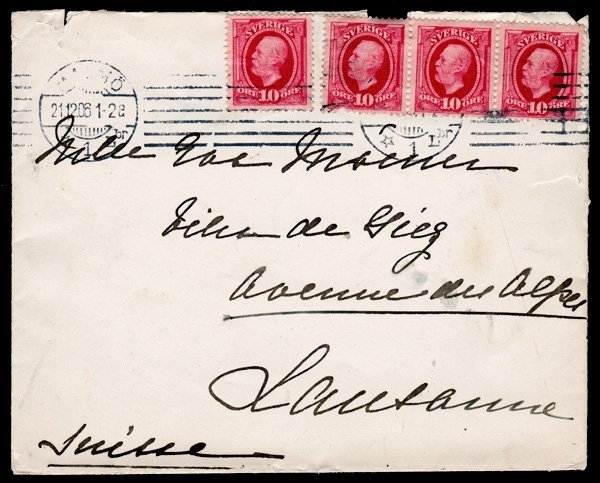 SVERIGE SVERIGE SVERIGE SVERIGE
ÖRE 10 ÖRE ÖRE 10 ÖRE ÖRE 10 ÖRE ÖRE 10 ÖRE
MALMÖ
21.12.06 1-2 E
1 LBR
1 LBR
Villa de Gieg
Avenue des Alpes
Lausanne
Suisse